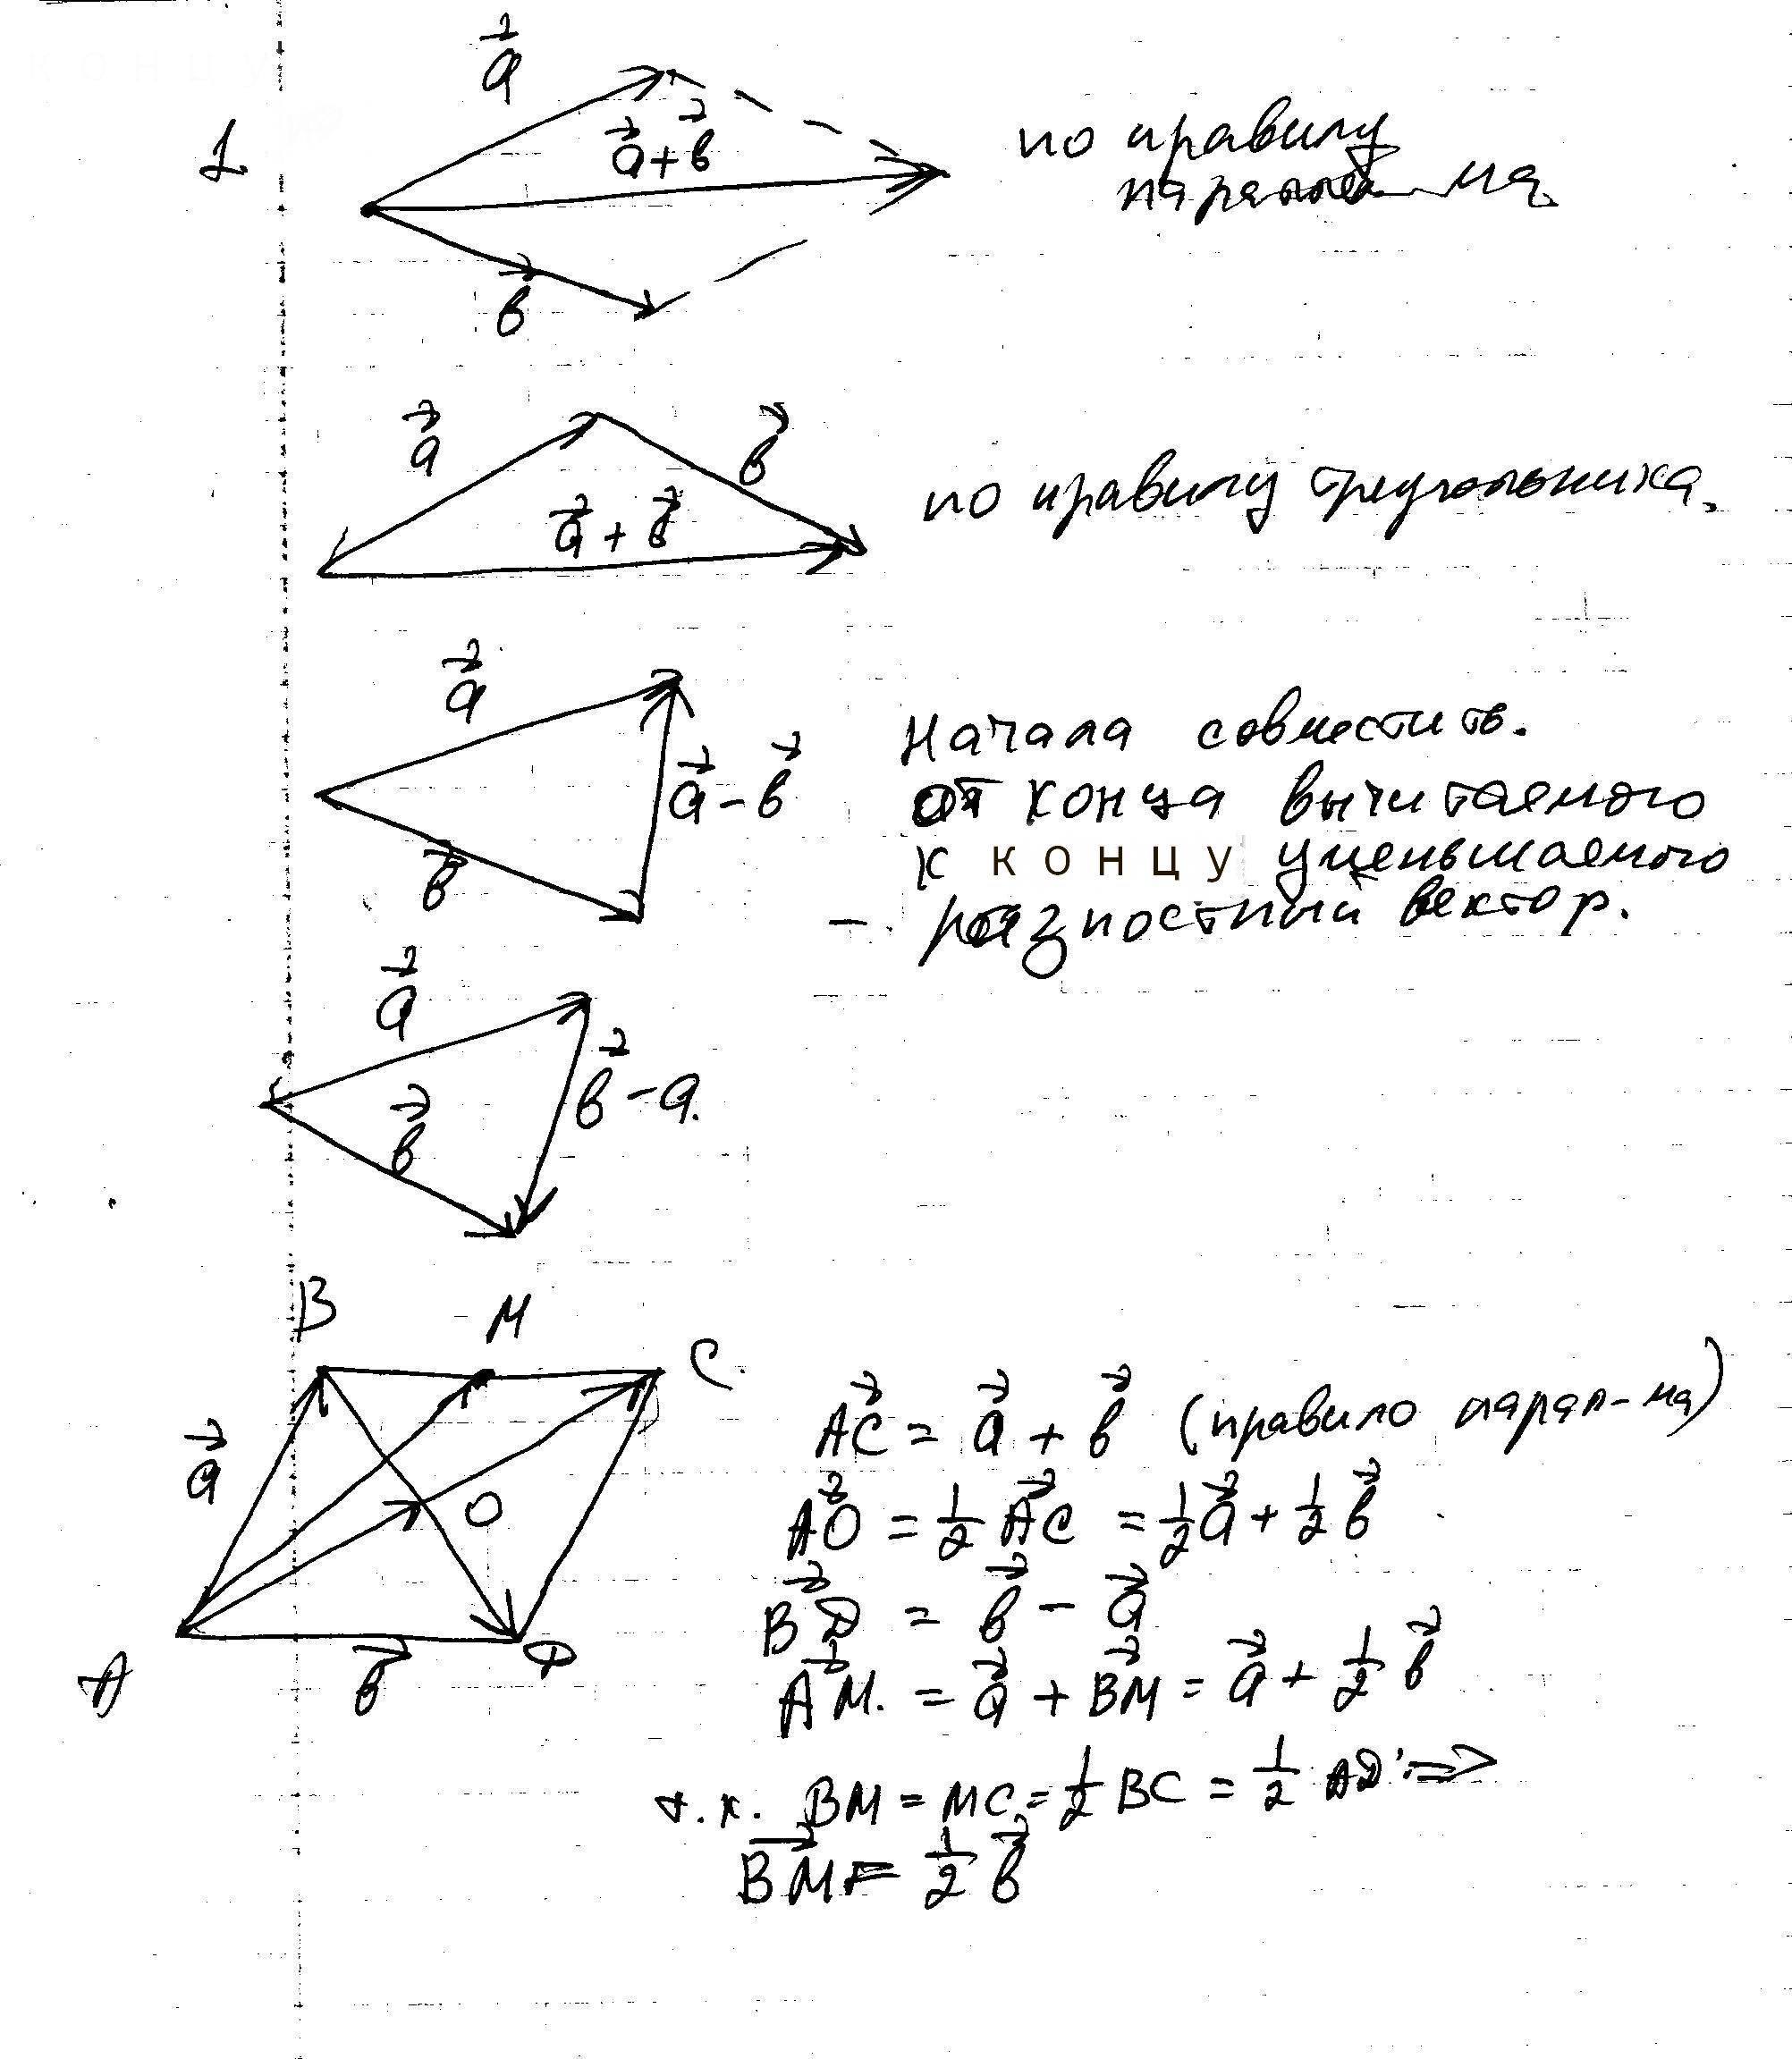 1.
a⃗
a⃗ + в⃗
в⃗
по правилу
парал-ма
a⃗
в⃗
a⃗ + в⃗
по правилу треугольника.
a⃗
a⃗ - в⃗
в⃗
Начала совместить.
от конца вычитаемого
к концу уменьшаемого
- разностный вектор.
a⃗
в⃗ - a.
в⃗
B M C.
a⃗
O
A в⃗ D
AC⃗ = a⃗ + в⃗ (правило парал-ма)
AO⃗ = 1/2 AC⃗ = 1/2 a⃗ + 1/2 в⃗
BD⃗ = в⃗ - a⃗
AM⃗. = a⃗ + BM⃗ = a⃗ + 1/2 в⃗
т.к. BM = MC = 1/2 BC = 1/2 AD =>
BM⃗ = 1/2 в⃗